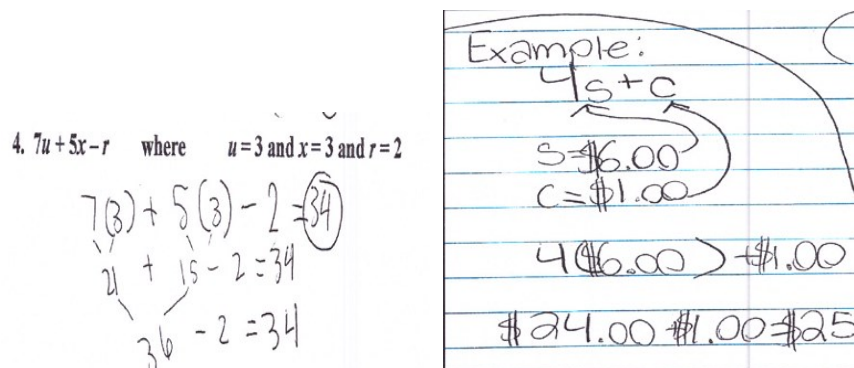 4. 7u + 5x - r where u = 3 and x = 3 and r = 2
7(3) + 5(3) - 2 = 34
21 + 15 - 2 = 34
36 - 2 = 34
Example:
4s + c
s = $6.00
c = $1.00
4($6.00) + $1.00
$24.00 + $1.00 = $25